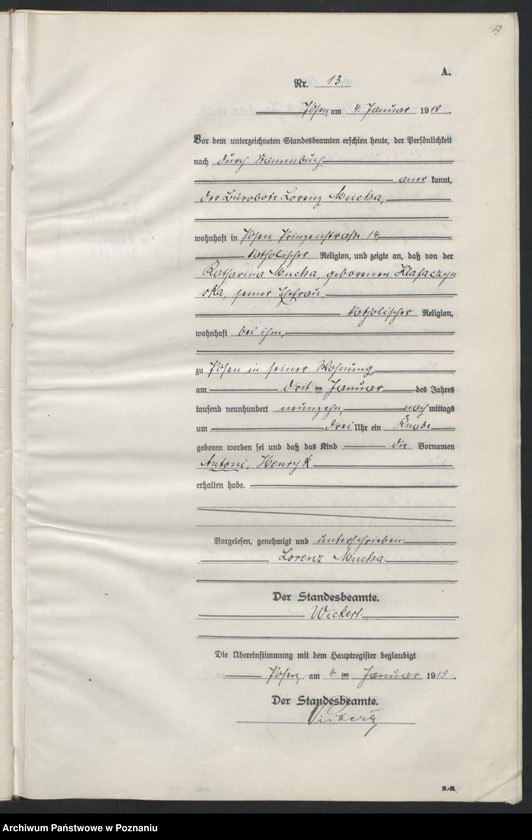 13
A.
Nr. 13
Posen, am 4. Januar 1919.
Vor dem unterzeichneten Standesbeamten erschien heute, der Persönlichkeit
nach durch Stammbuch
aner kannt,
der Bürobote Lorenz Mucha,
wohnhaft in Posen Prinzenstraße 19.
katholischer Religion, und zeigte an, daß von der
Katharina Mucha, geborenen
ska, seiner Ehefrau
katholischer Religion,
wohnhaft bei ihm,
zu Posen in seiner Wohnung
am drit ten Januar des Jahres
tausend neunhundert neunzehn, nach mittags
um drei Uhr ein Knabe
geboren worden sei und daß das Kind die Vornamen
Antoni, Henryk
erhalten habe.
Vorgelesen, genehmigt und unterschrieben
Lorenz Mucha
Der Standesbeamte.
Wickert
Die Übereinstimmung mit dem Hauptregister beglaubigt
Posen, am 4 ten Januar 1919.
Der Standesbeamte.
Wickert
R.-R.
Archiwum Państwowe w Poznaniu